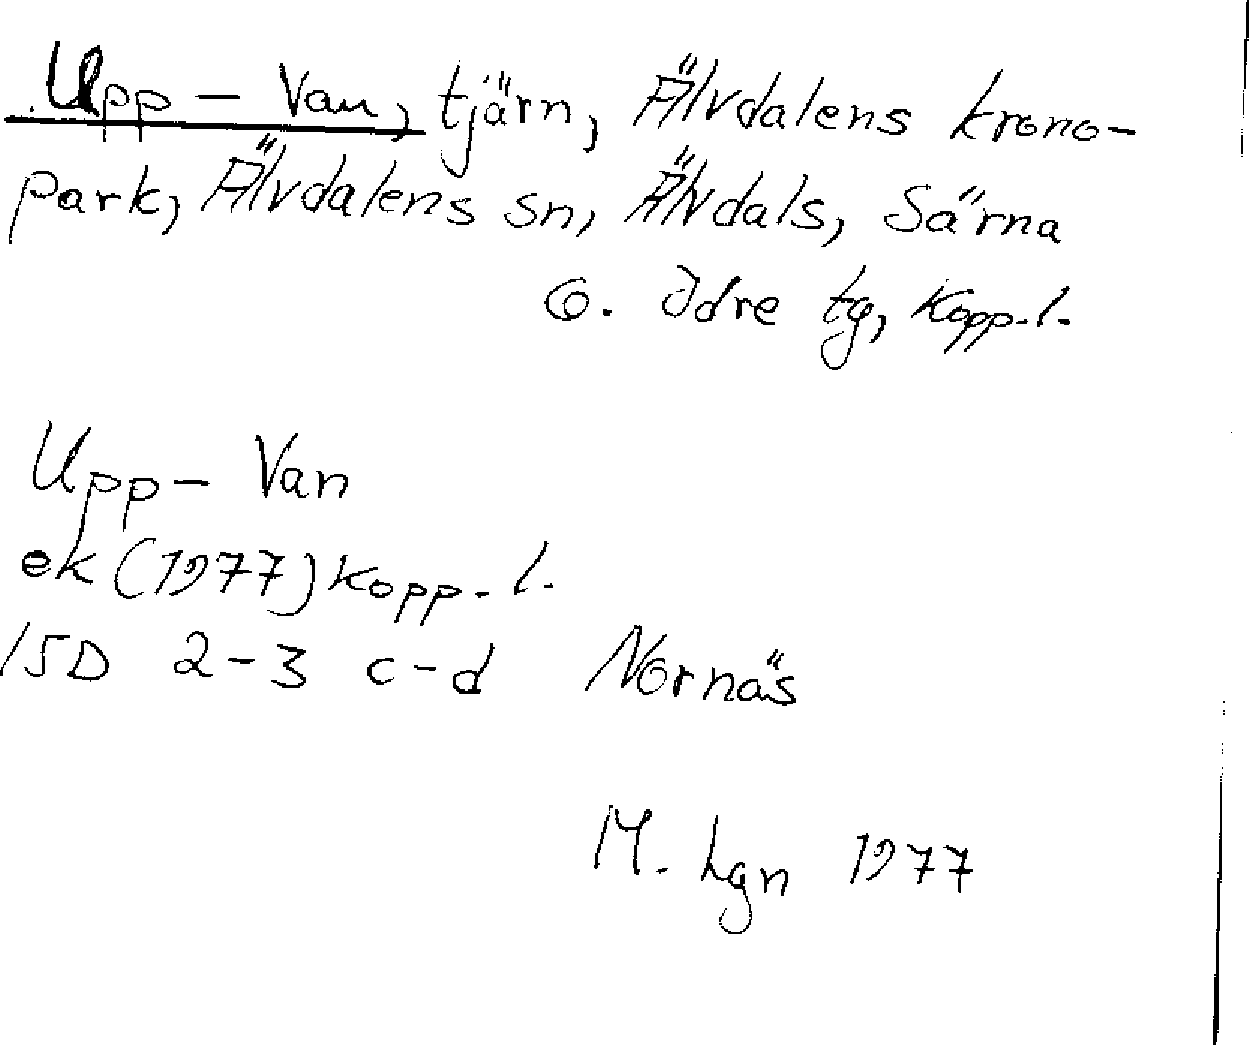 Upp - Van, tjärn, Älvdalens krono-
park, Älvdalens sn, Älvdals, Särna
o. Idre tg, Kopp.l.
Upp- Van
ek (1977) Kopp. l.
15D 2-3 c-d Nornäs
M. Lgn 1977